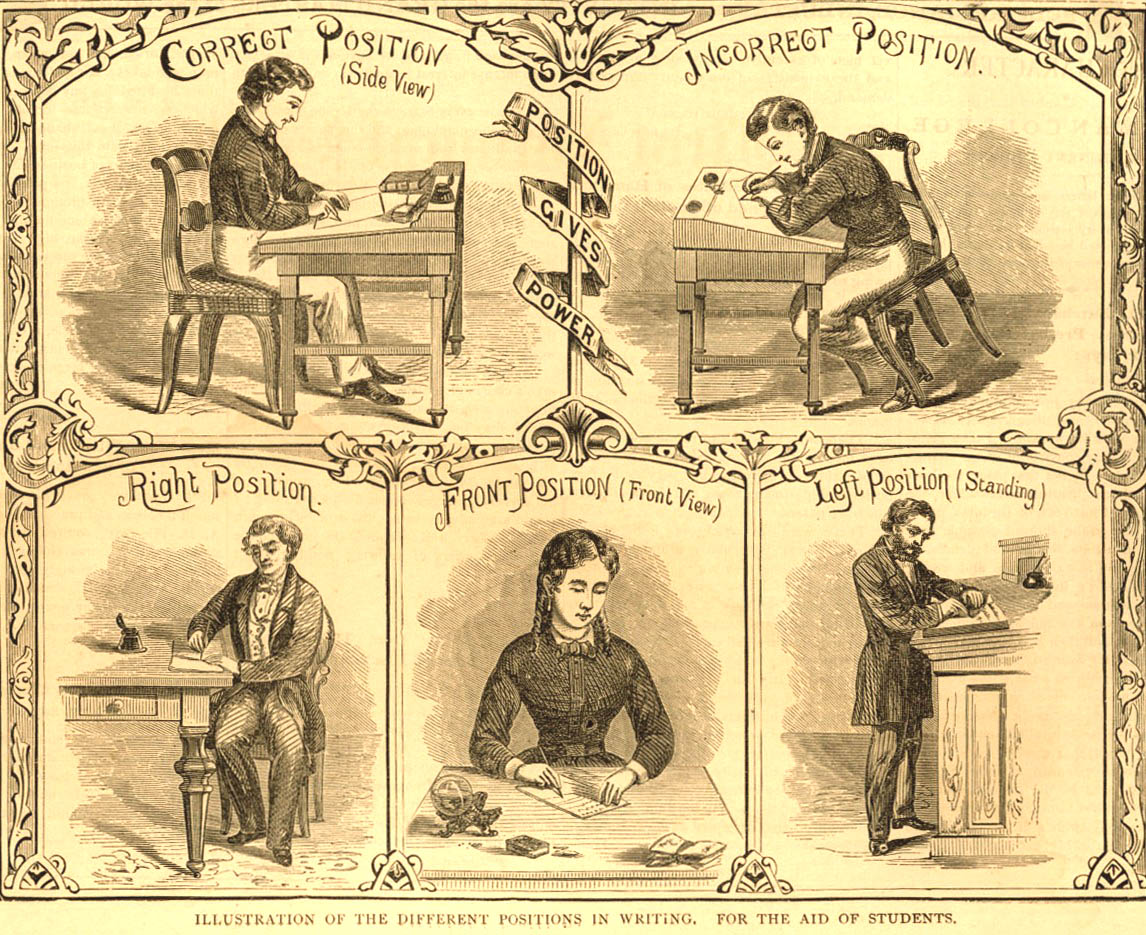 CORRECT POSITION
(Side View)
INCORRECT POSITION.
POSITION
GIVES
POWER
Right Position.
FRONT POSITION (Front View)
Left Position (Standing)
ILLUSTRATION OF THE DIFFERENT POSITIONS IN WRITING. FOR THE AID OF STUDENTS.